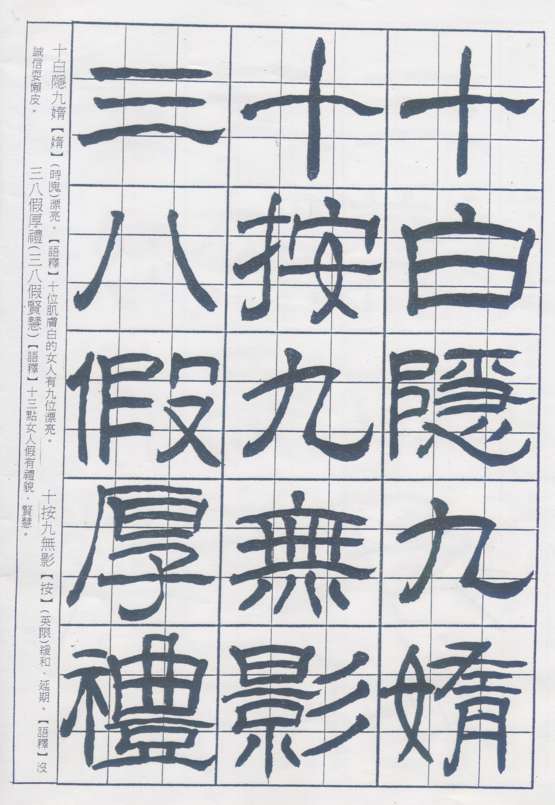 十白隱九媠
十按九無影
三八假厚禮
十白隱九媠【媠】(時愧)漂亮。【語釋】十位肌膚白的女人有九位漂亮。
十按九無影【按】(英限)緩和、延期。【語釋】沒
誠信耍懶皮。
三八假厚禮(三八假賢慧)【語釋】十三點女人假有禮貌、賢慧。